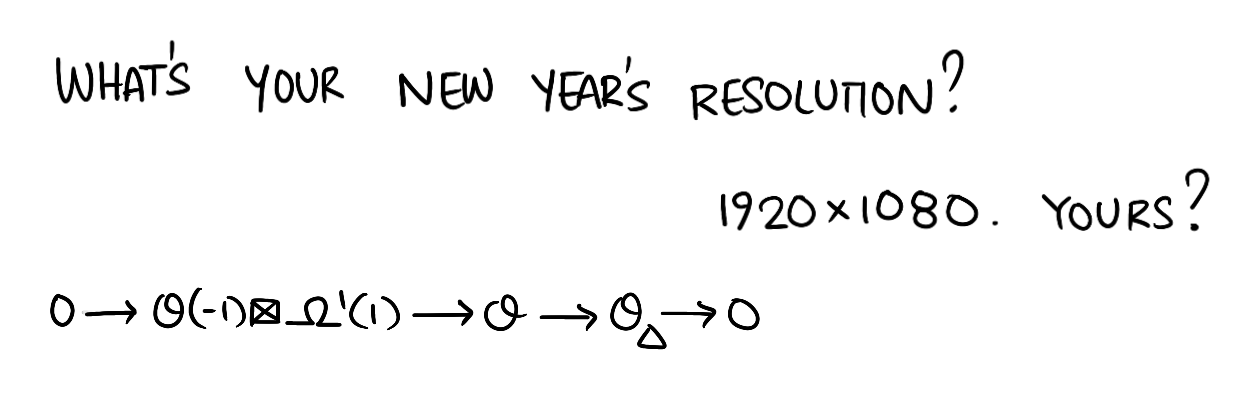 WHAT'S YOUR NEW YEAR'S RESOLUTION?
1920×1080. YOURS?
0 → 𝒪(-1)⊠Ω¹(1) → 𝒪 → 𝒪_Δ → 0